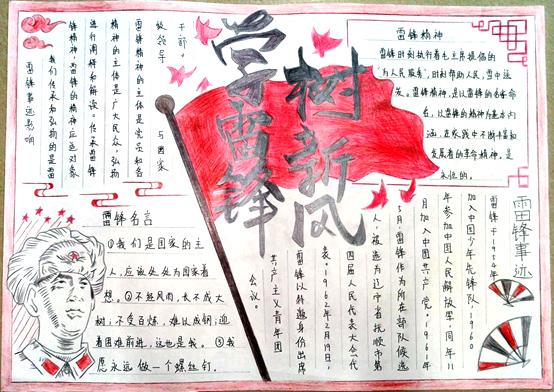 学雷锋
树新风
雷锋精神
雷锋时刻执行着毛主席提倡的
"为人民服务",时刻帮助人民,雪中送
炭。雷锋精神,是以雷锋的名字命
名,以雷锋的精神为基本内
涵,在实践中不断丰富和
发展着的革命精神,是
永恒的。
雷锋事迹影响
我们传承和弘扬的是雷
锋精神,雷锋的精神应适对象
进行阐释和解读。传承雷锋
精神的主体是广大民众,弘扬
雷锋精神的主体是党员和各
级领导与国家
干部。
雷锋名言
①我们是国家的主
人,应该处处为国家着
想。②不经风雨,长不成大
树;不受百炼,难以成钢;迎
着困难前进,这也是我。③我
愿永远做一个螺丝钉。
雷锋事迹
雷锋于1954年
加入中国少年先锋队,1960
年参加中国人民解放军,同年11
月加入中国共产党。1961年
5月,雷锋作为所在部队候选
人,被选为辽宁省抚顺市第
四届人民代表大会代
表。1962年2月19日,
雷锋以特邀身份出席
共产主义青年团
会议。